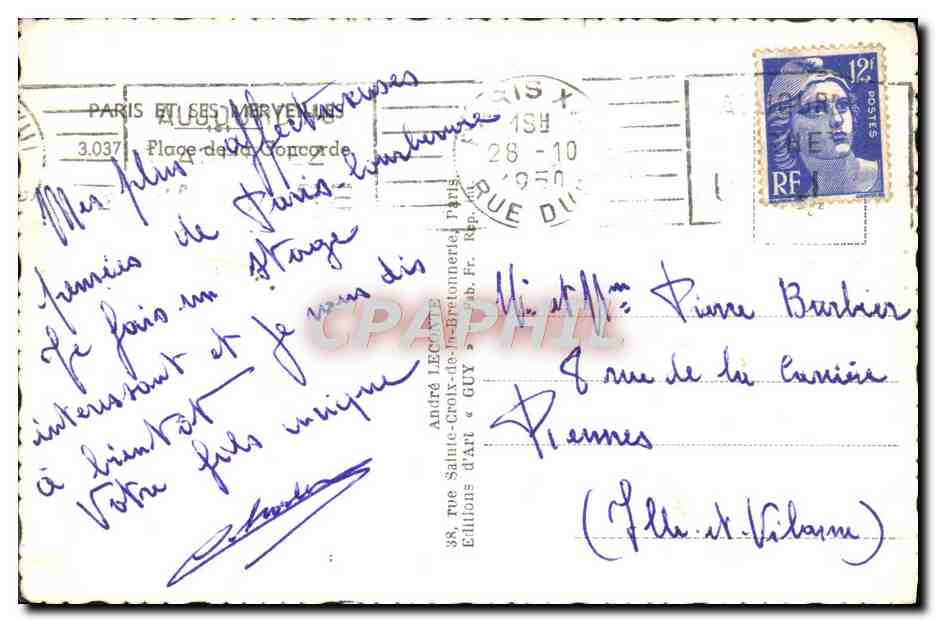 PARIS ET SES MERVEILLES
3.037 Place de la Concorde
Mes plus affectueuses
pensées de Paris
Je fais un stage
interessant et Je vous dis
à bientôt
Votre fils unique
André LECONTE
38, rue Sainte-Croix-de-la-Bretonnerie, Paris
Editions d'Art « GUY » Fab. Fr. Rep. Int.
PARIS X
18H
28 -10
1950
RUE DU
12F
POSTES
RF
Mr et Mme Pierre Barbier
8 rue de la Carrière
Rennes
(Ille-et-Vilaine)
CPAPHIL